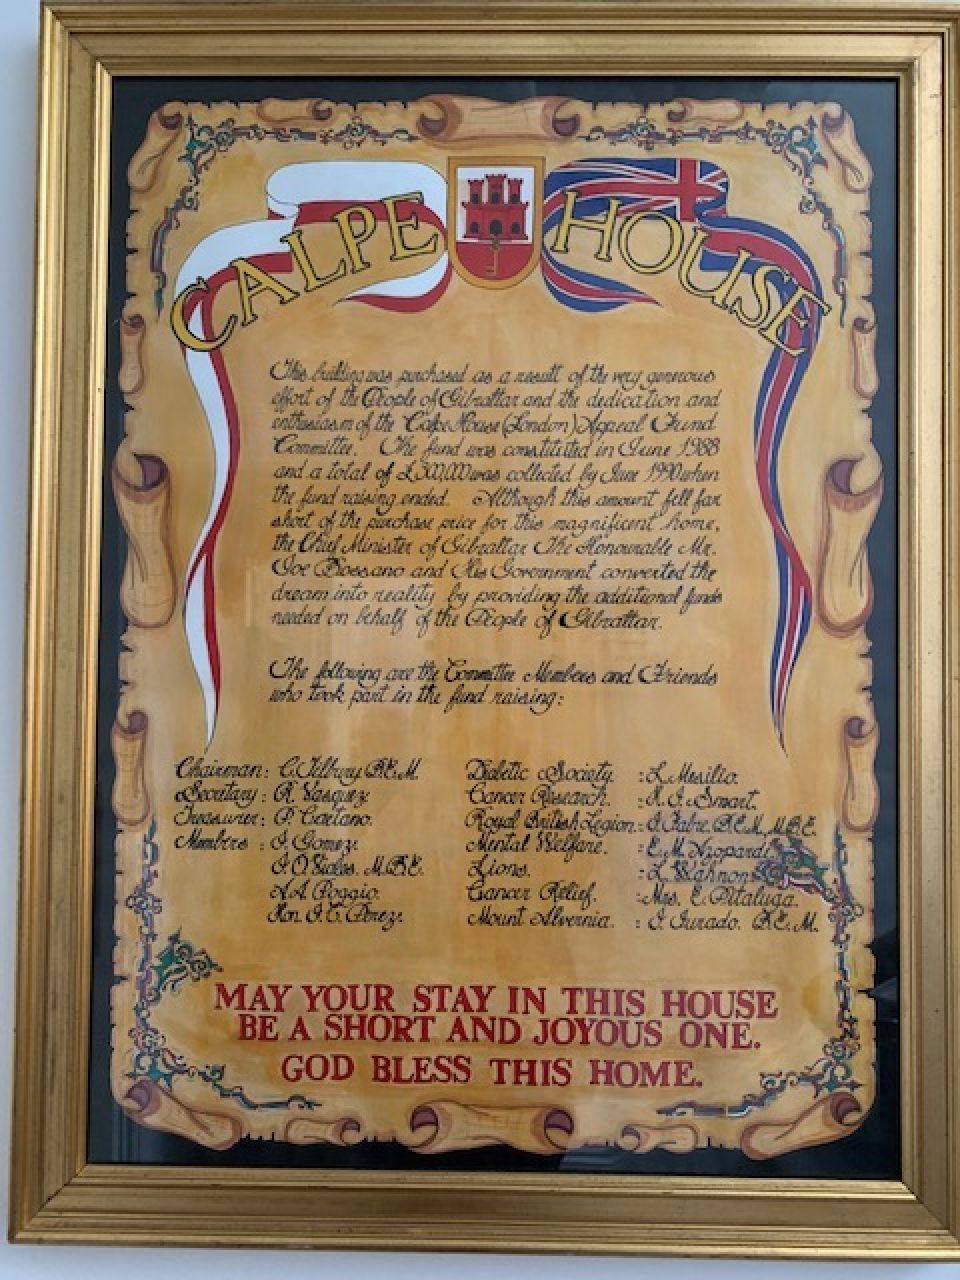 CALPE HOUSE
This building was purchased as a result of the very generous
effort of the People of Gibraltar and the dedication and
enthusiasm of the Calpe House (London) Appeal Fund
Committee. The fund was constituted in June 1988
and a total of £300,000 was collected by June 1990 when
the fund raising ended. Although this amount fell far
short of the purchase price for this magnificent home,
the Chief Minister of Gibraltar The Honourable Mr.
Joe Bossano and His Government converted the
dream into reality by providing the additional funds
needed on behalf of the People of Gibraltar.
The following are the Committee Members and Friends
who took part in the fund raising:
Chairman: C. Tilbury B.E.M.
Secretary: R. Vasquez
Treasurer: P. Caetano.
Members: J. Gomez.
M.B.E.
A.A. Poggio.
Hon. J. E. Perez.
Diabetic Society. : L. Mosilio.
Cancer Research. : Smart.
Royal British Legion: J. Fabre. B.E.M., M.B.E.
Mental Welfare. : E. M. Nzopardi
Lions. : L. Wahnon
Cancer Relief. : Mrs. E. Pitaluga.
Mount Alvernia. : J. Jurado. B.E.M.
MAY YOUR STAY IN THIS HOUSE
BE A SHORT AND JOYOUS ONE.
GOD BLESS THIS HOME.